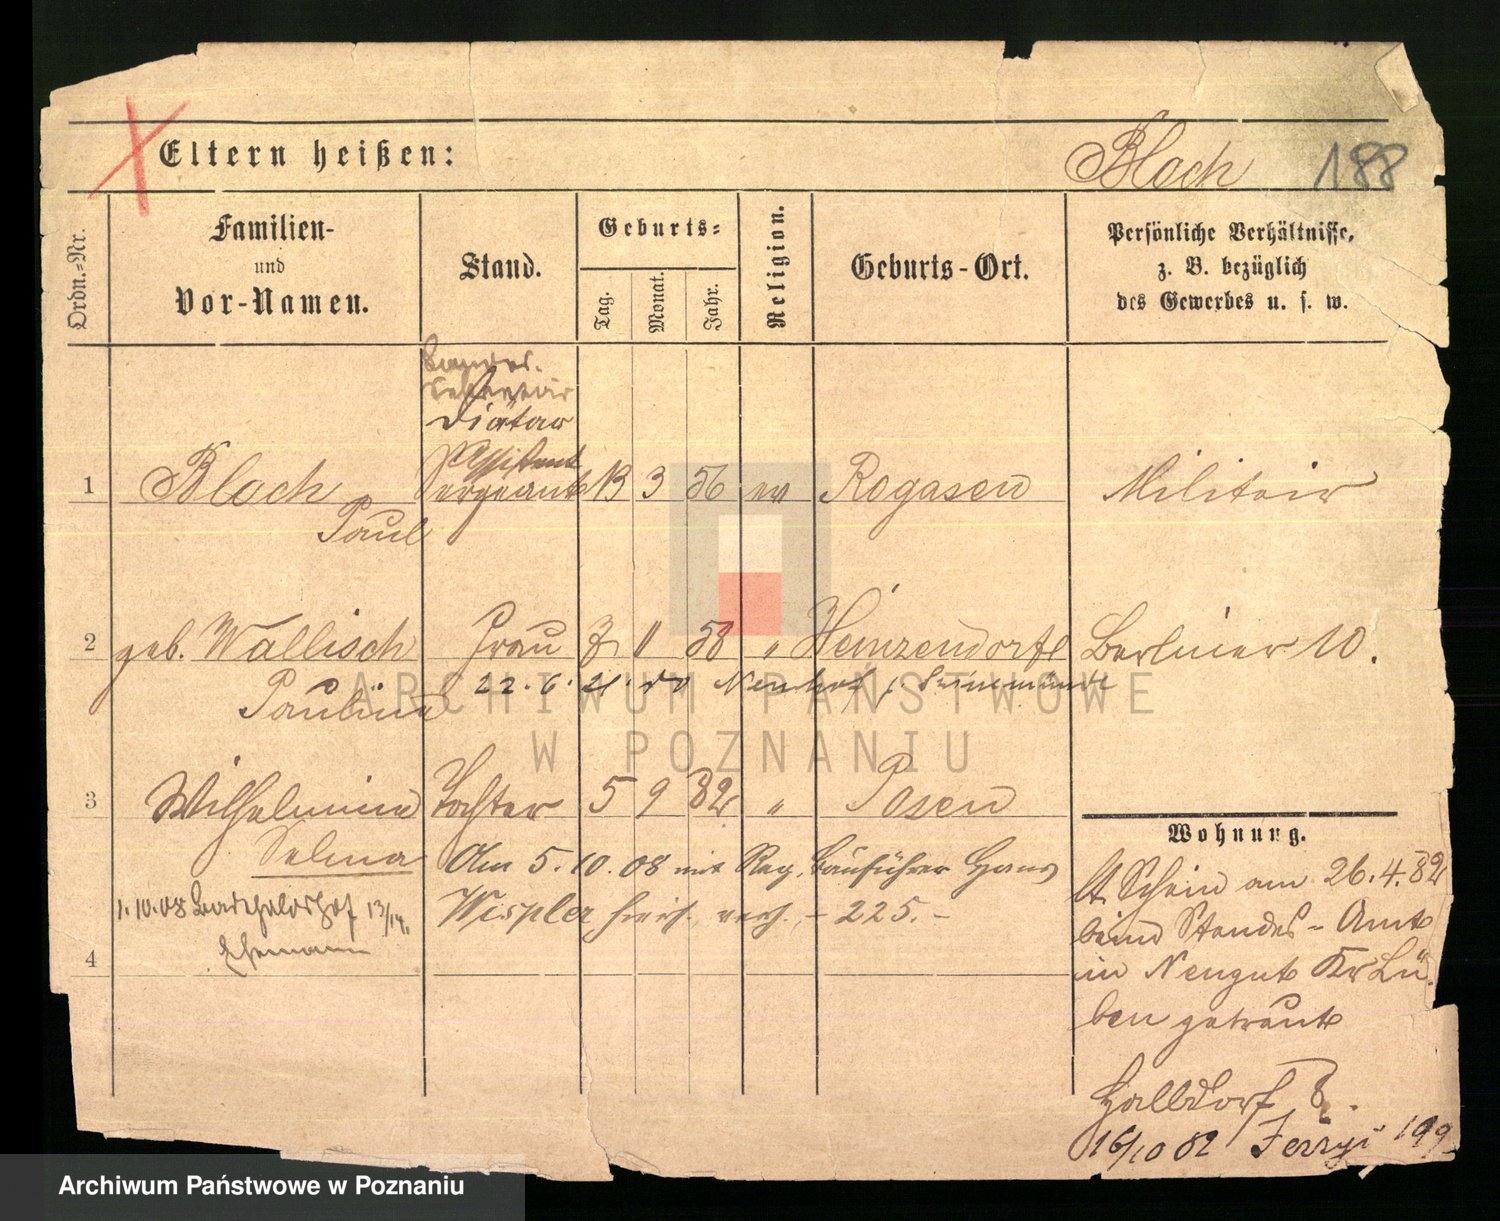 Eltern heißen:
Bloch 188
Ordn.=Nr.
Familien-
und
Vor-Namen.
Stand.
Geburts=
Tag.
Monat.
Jahr.
Religion.
Geburts-Ort.
Persönliche Verhältnisse,
z. B. bezüglich
des Gewerbes u. s. w.
Diätar
Assistent
1 Bloch Sergeant 13 3 56 ev Rogasen Militair
Paul
2 geb. Wallisch Frau 7 11 58 " Heinzendorf Berliner 10.
22. 6. 21.
Pauline
ARCHIWUM PAŃSTWOWE
W POZNANIU
3 Wilhelmine Tochter 5 9 82 " Posen
Selma
Am 5. 10. 08 mit Reg. Bauführer Hans
1.10.08 13/14.
Wispler verh. - 225. -
Ehemann
4
Wohnung.
lt Schein am 26.4.82
beim Standes-Amt
in Neugut Kr Lü
ben getraut
Halldorf 8.
16/10 82 199
Archiwum Państwowe w Poznaniu